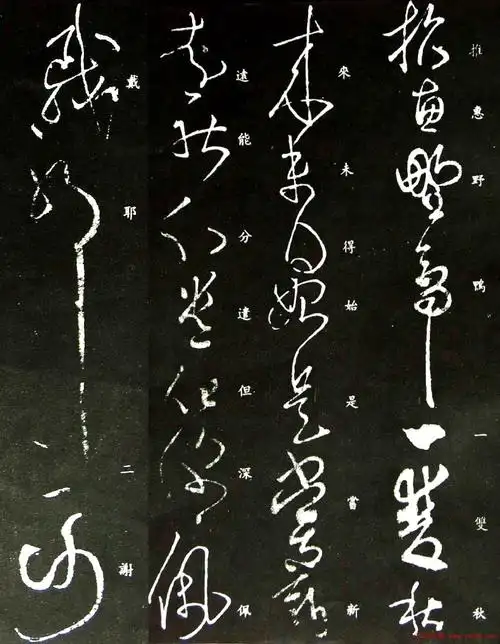 推惠野鴨一雙秋
來未得始是嘗新
遠能分遺但深佩
戴耶二謝